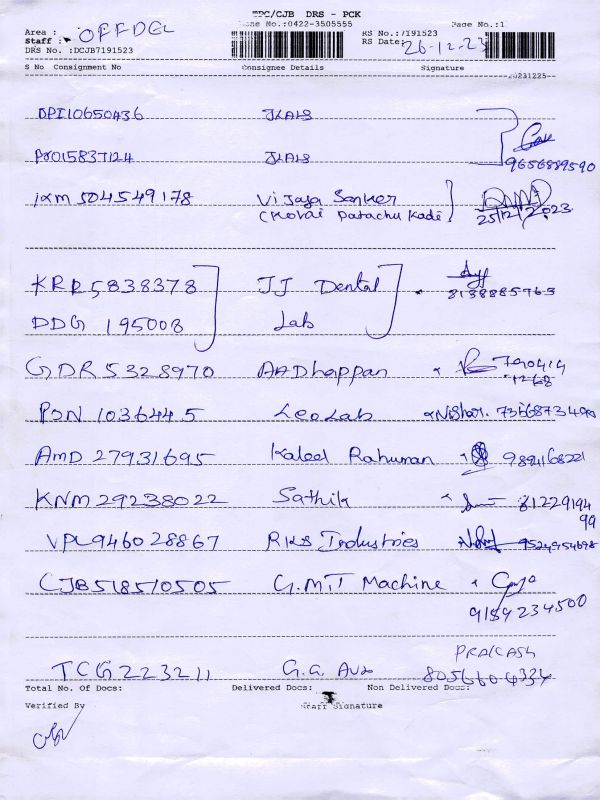 TPC/CJB DRS - PCK
Phone No.:0422-3505555 Page No.:1
Area : OFFDEL
Staff :
RS No.:7191523
DRS No. :DCJB7191523
RS Date: 26-12-23
S No Consignment No Consignee Details Signature
20231225
DPI10650436 JLAHS
P8015837124 JLAHS
9656889590
IXM 504549178 Vijaya Sanker
(Kovai Patachu Kadi) 25/12/2023
KRR5838378 JJ Dental
8138885765
DDG 195008 Lab
GDR5328970 AADhappan 790414
1268
PDN 1036445 Leo Lab Nishar. 7346873499
AMD 27931695 Kaleel Rahuman 9894168221
KNM 29238022 Sathik 81229194
99
VPL946028867 RKS Industries 9524954698
CJB518510505 G.MIT Machine
9154234500
PRAKASH
TCG223211 G.G. Ave 8056604334
Total No. Of Docs: Delivered Docs: Non Delivered Docs:
Verified By Staff Signature